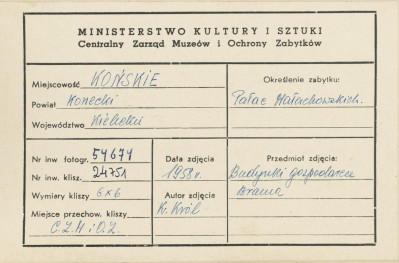 MINISTERSTWO KULTURY I SZTUKI
Centralny Zarząd Muzeów i Ochrony Zabytków
Miejscowość KOŃSKIE
Powiat Konecki
Województwo Kielecki
Określenie zabytku:
Pałac Małachowskich.
Nr inw fotogr. 54674
Nr inw. klisz. 24751
Wymiary kliszy 6x6
Miejsce przechow. kliszy
C.Z.M i O.Z.
Data zdjęcia
1958 r.
Autor zdjęcia
K. Król
Przedmiot zdjęcia:
Budynki gospodarcze
Brama